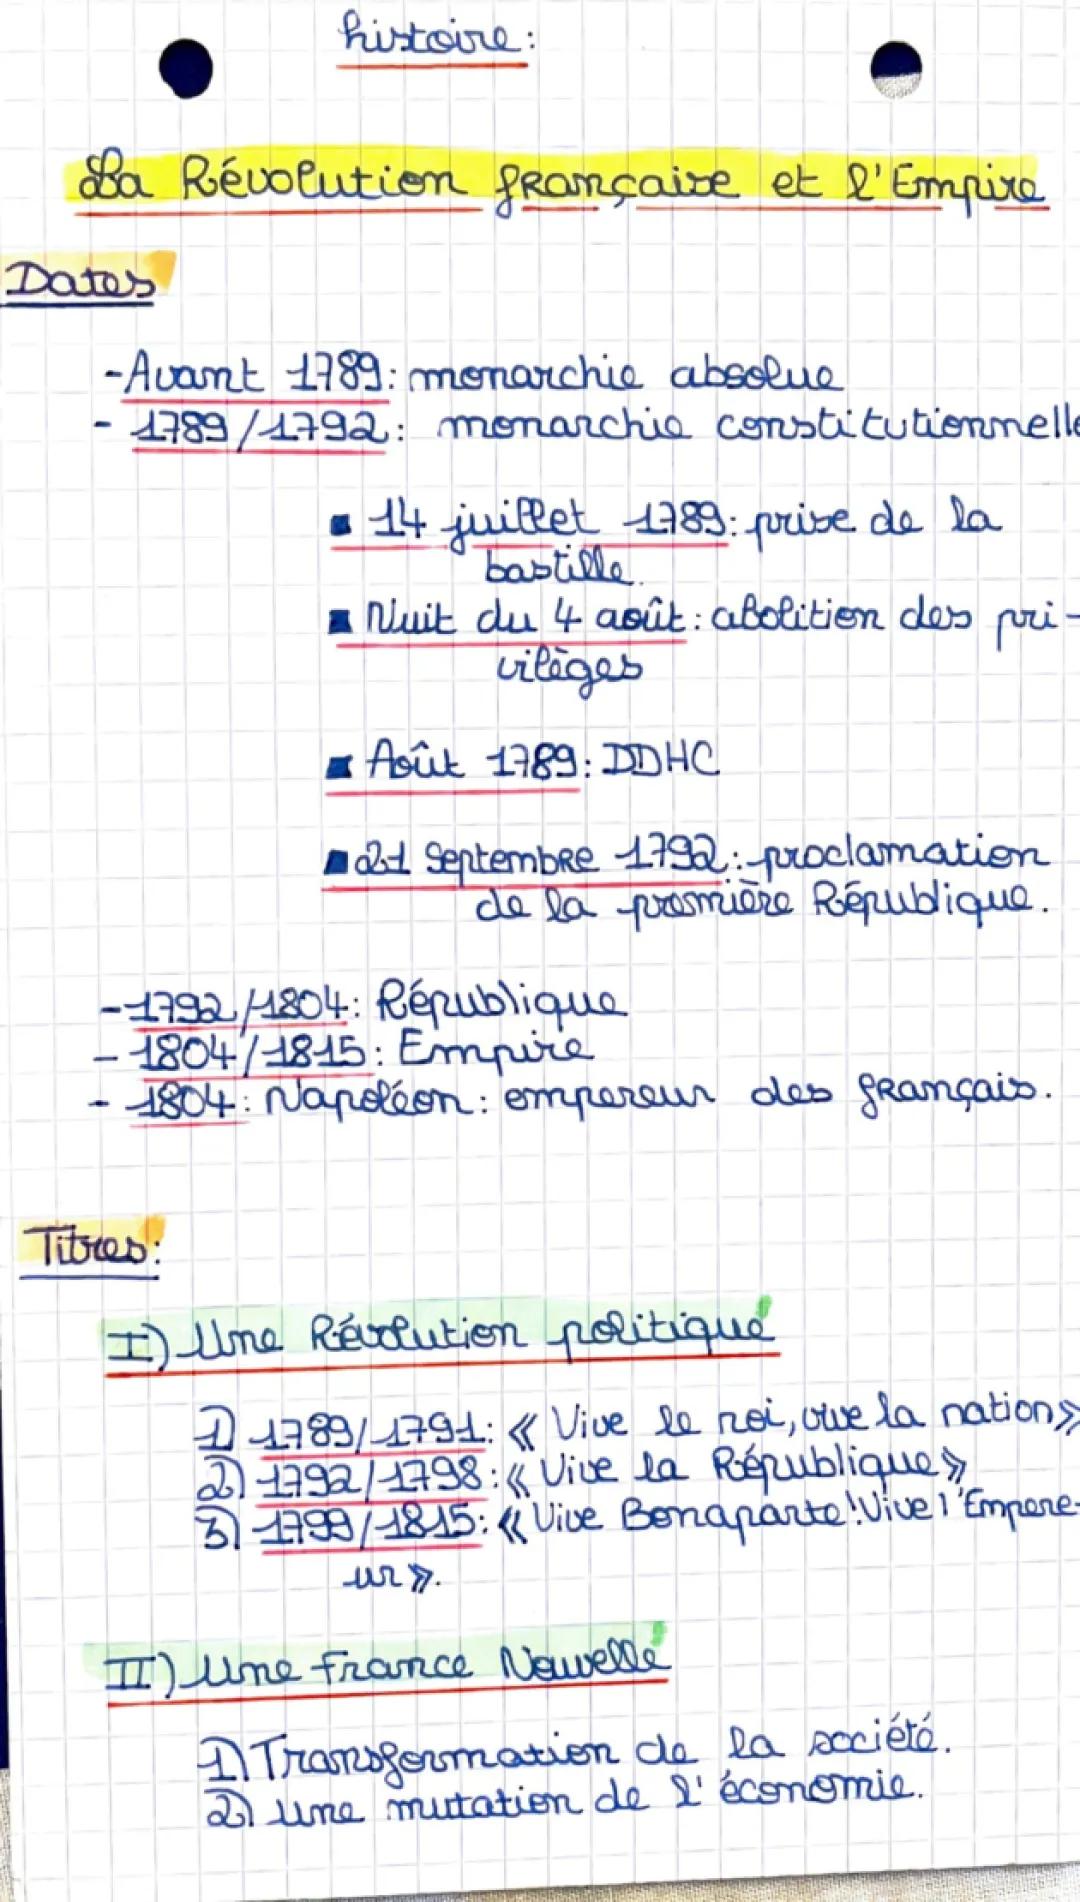 histoire:
La Révolution française et l'Empire
Dates
-Avant 1789: monarchie absolue
- 1789/1792: monarchie constitutionnelle
▪ 14 juillet 1789: prise de la
bastille.
▪ Nuit du 4 août: abolition des pri-
vilèges
▪ Août 1789: DDHC
▪ 21 Septembre 1792: proclamation
de la première République.
-1792/1804: République
- 1804/1815: Empire
- 1804: Napoléon: empereur des français.
Titres:
I) Une Révolution politique
1) 1789/1791: « Vive le roi, vive la nation»
2) 1792/1798: « Vive la République»
3) 1799/1815: « Vive Bonaparte! Vive l'Empere-
ur ».
II) Une France Nouvelle
1) Transformation de la société.
2) une mutation de l'économie.